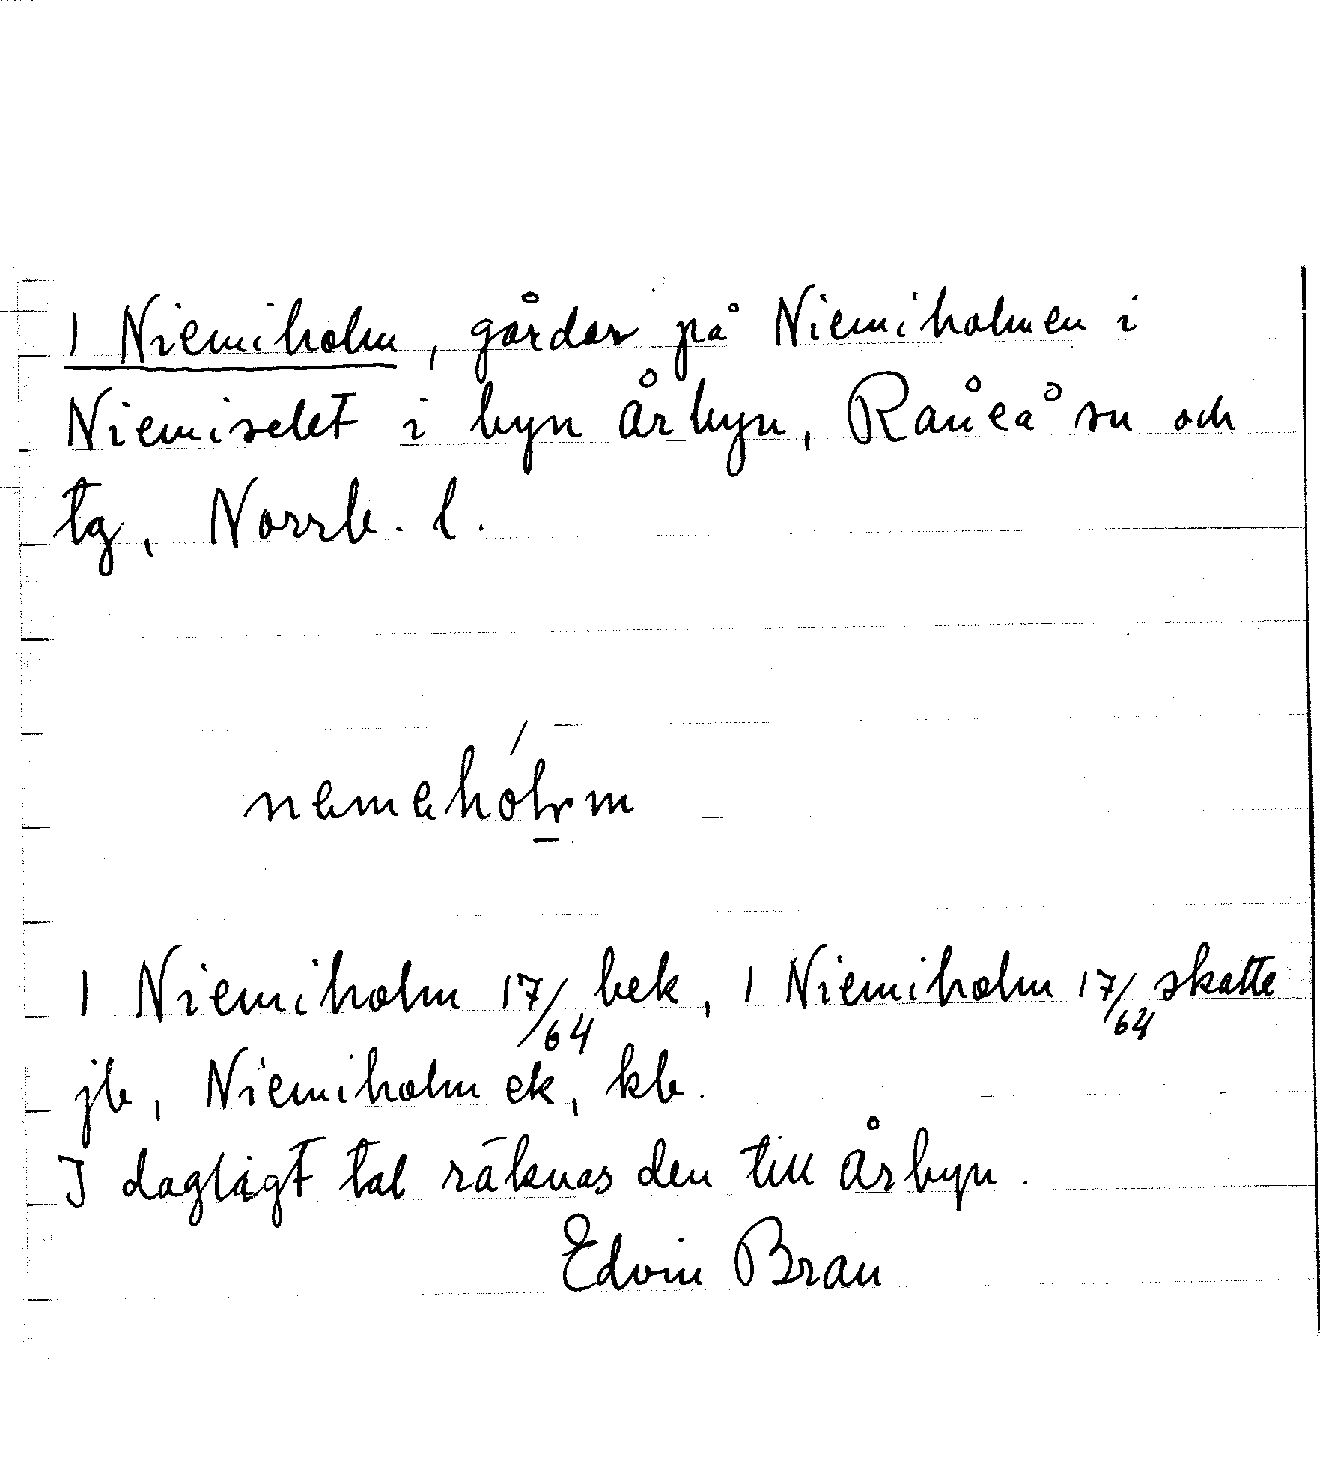 1 Niemiholm, gårdar på Niemiholmen i
Niemiselet i byn Årbyn, Råneå sn och
tg, Norrb. l.
nemehólm
1 Niemiholm 17/64 bek, 1 Niemiholm 17/64 skatte
jb, Niemiholm ek, kb.
I dagligt tal räknas den till Årbyn.
Edvin Brau